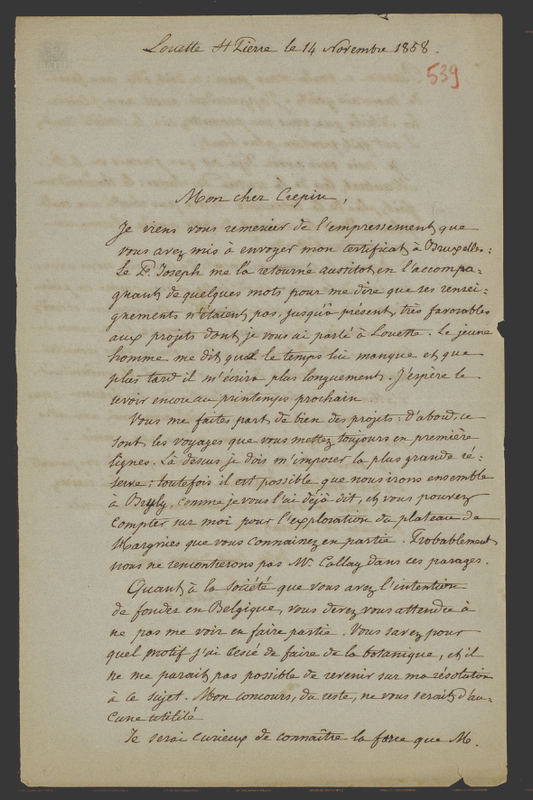 Louette St Pierre le 14 Novembre 1858.
539
Mon cher Crepin,
Je viens vous remercier de l'empressement que
vous avez mis à envoyer mon certificat à Bruxelles:
Le P. Joseph me l'a retourné aussitot en l'accompa-
gnant de quelques mots pour me dire que ses rensei-
gnements n'étaient pas, jusqu'à présent, très favorables
aux projets dont je vous ai parlé à Louette. Le jeune
homme me dit que le temps lui manque et que
plus tard il m'écrira plus longuement. J'espère le
revoir encore au printemps prochain.
Vous me faites part de bien des projets: d'abord, ce
sont les voyages que vous mettez toujours en première
lignes. Là dessus je dois m'imposer la plus grande ré-
serve: toutefois il est possible que nous irons ensemble
à comme je vous l'ai déjà dit, et vous pouvez
compter sur moi pour l'exploration du plateau de
Hargnies que vous connaissez en partie. Probablement
nous ne rencontrerons pas Mr Callay dans ces parages.
Quant à la société que vous avez l'intention
de fonder en Belgique, vous devez vous attendre à
ne pas me voir en faire partie. Vous savez pour
quel motif j'ai cessé de faire de la botanique, et il
ne me parait pas possible de revenir sur ma résolution
à ce sujet. Mon concours, du reste, ne vous serait d'au-
cune utilité
Je serai curieux de connaître la force que M.